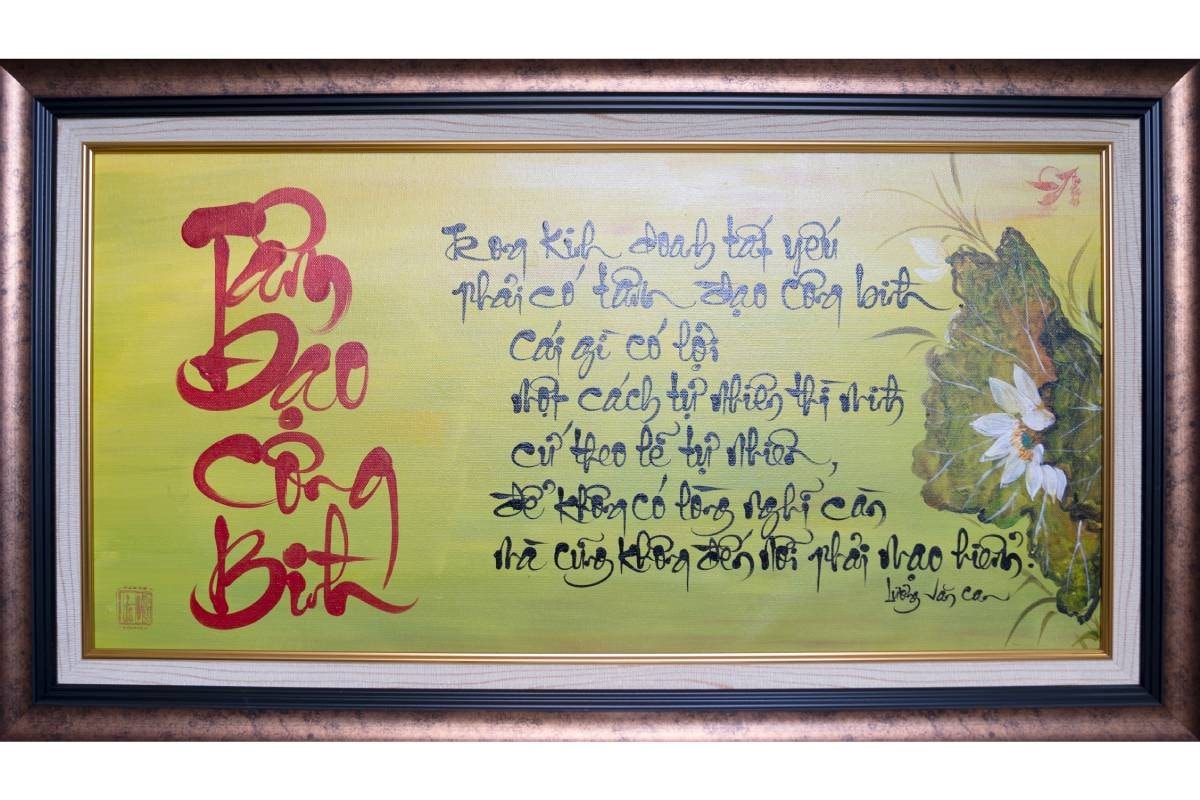 Tâm
Đạo
Công
Bình
Trong kinh doanh tất yếu
phải có tâm đạo công bình
Cái gì có lợi
Một cách tự nhiên thì mình
cứ theo lẽ tự nhiên,
để không có lòng nghĩ càn
mà cũng không đến nỗi phải mạo hiểm.
Lương Văn Can